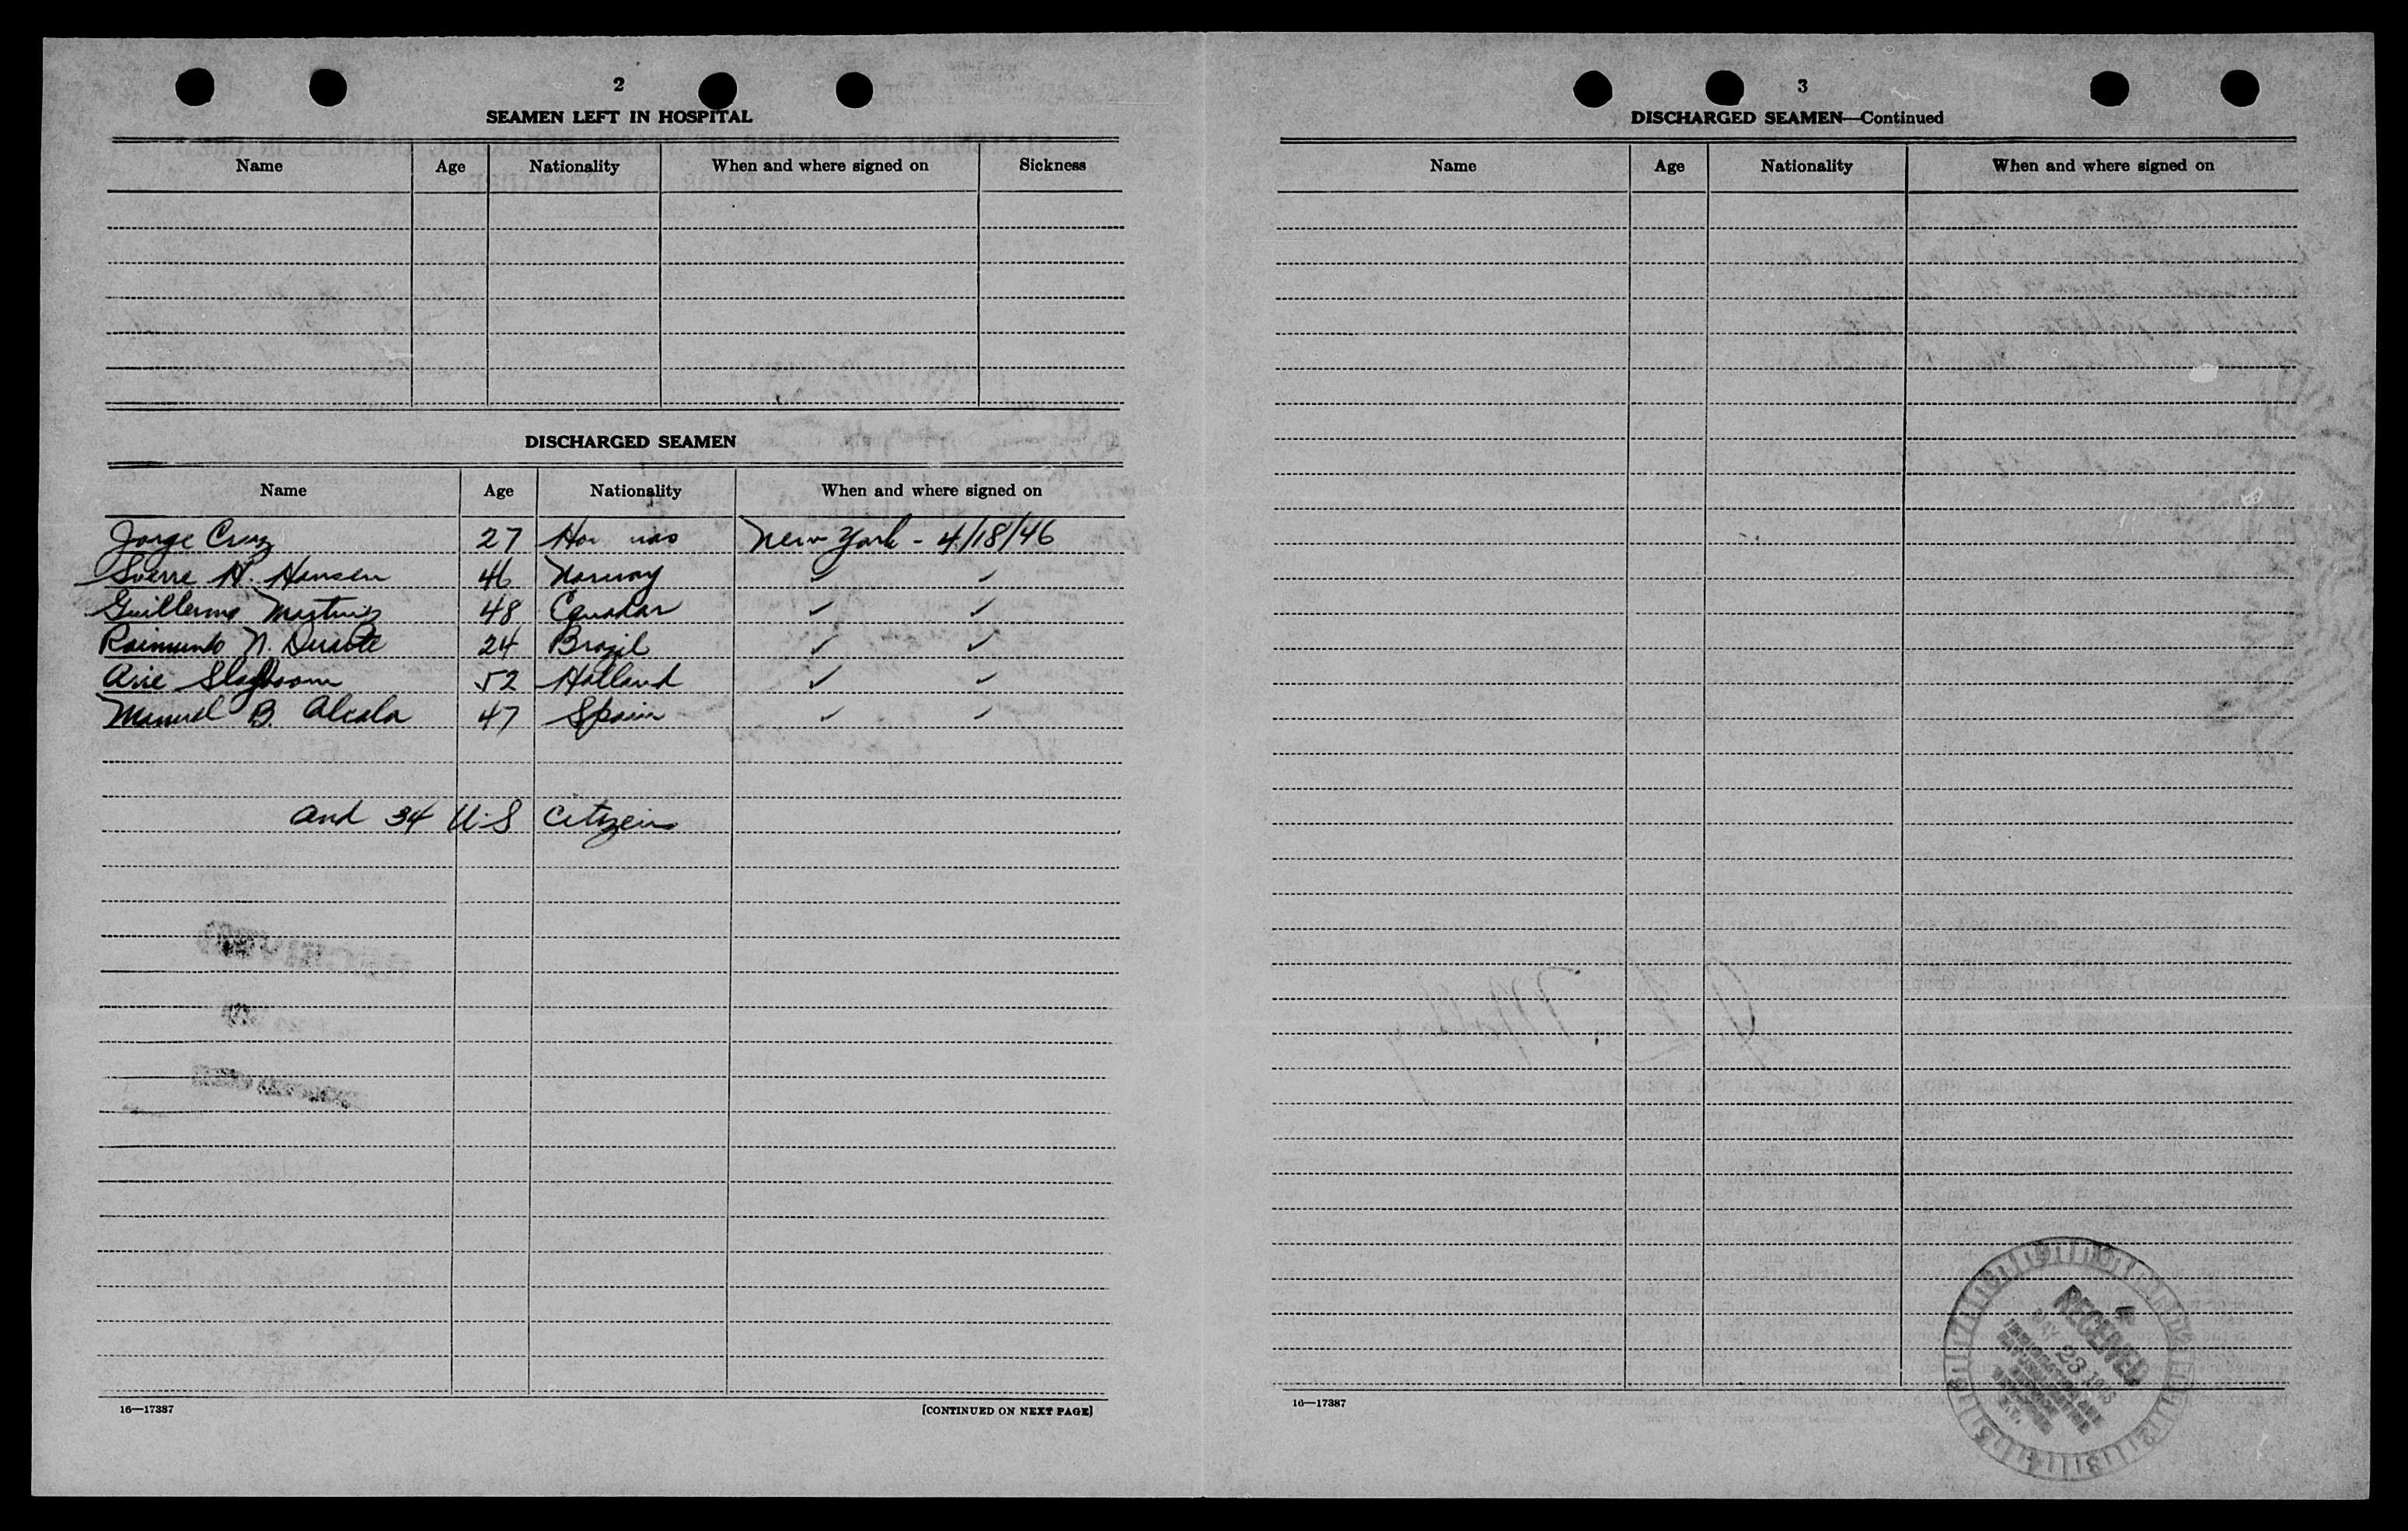 2
SEAMEN LEFT IN HOSPITAL
Name Age Nationality When and where signed on Sickness
DISCHARGED SEAMEN
Name Age Nationality When and where signed on
Jorge Cruz 27 New York - 4/18/46
Sverre H. Hansen 46 Norway ✓ ✓
Guillermo Martinez 48 ✓ ✓
Raimundo N. Duarte 24 Brazil ✓ ✓
Arie Slagboom 52 Holland ✓ ✓
Manuel B. Alcala 47 Spain ✓ ✓
and 34 U.S Citizens
16—17387
[CONTINUED ON NEXT PAGE]
3
DISCHARGED SEAMEN—Continued
Name Age Nationality When and where signed on
RECEIVED
MAY 23 1946
16—17387